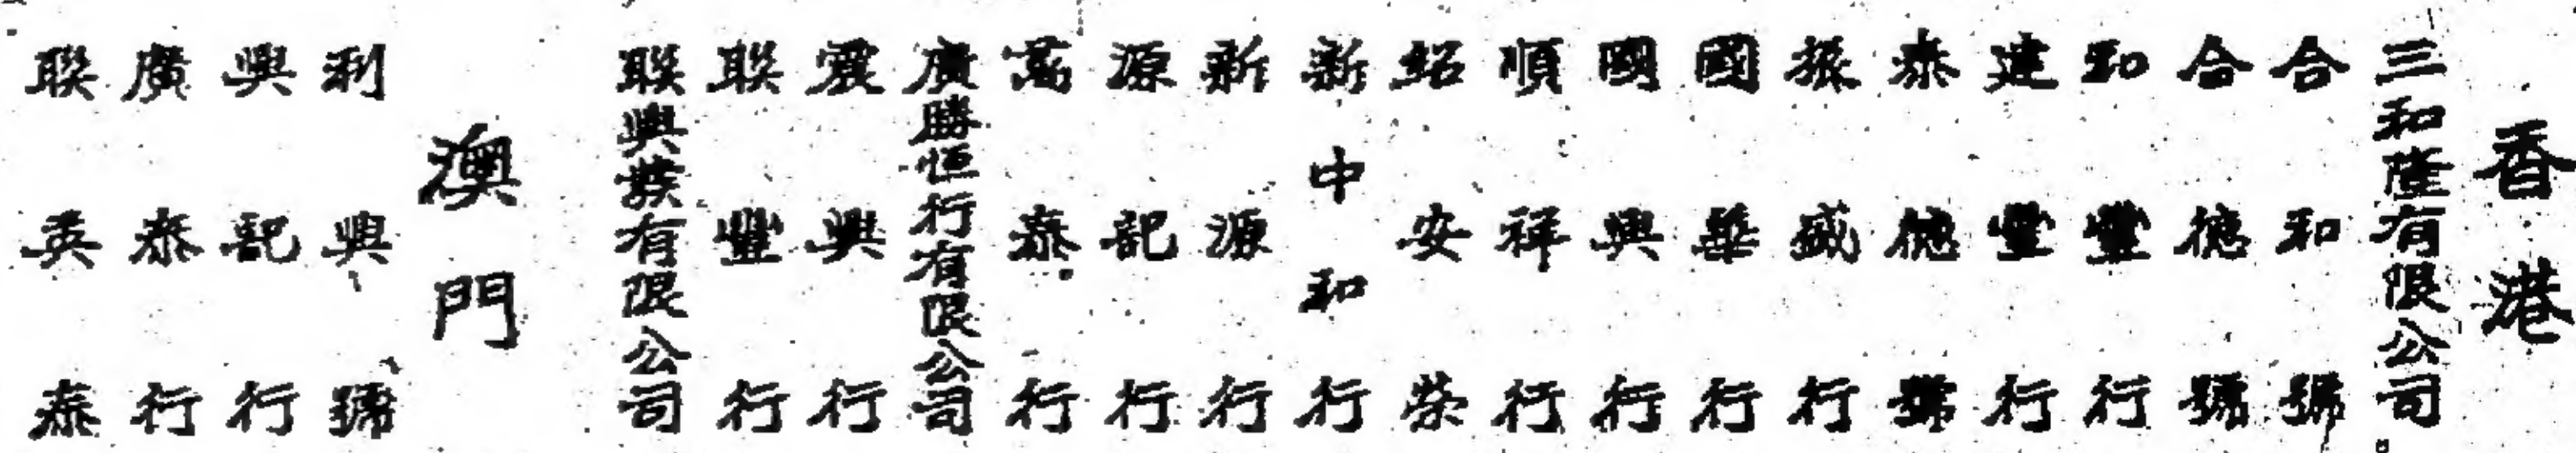 香港
三和隆有限公司
合和號
合德號
和豐行
建豐行
泰德號
振盛行
國華行
國興行
順祥行
紹安榮
新中和行
新源行
源記行
萬泰行
廣勝恒行有限公司
震興行
聯豐行
聯興裝有限公司
澳門
利興號
興記行
廣泰行
聯英泰